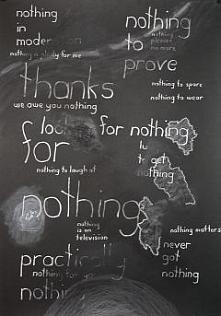 nothing
in
moder
nothing is plenty for me
thanks
we owe you nothing
look for nothing
for
nothing to laugh at
nothing
nothing
is on
television
practically
nothing
nothing
to
prove
nothing to spare
nothing to wear
to get
nothing
nothing matters
never
got
nothing